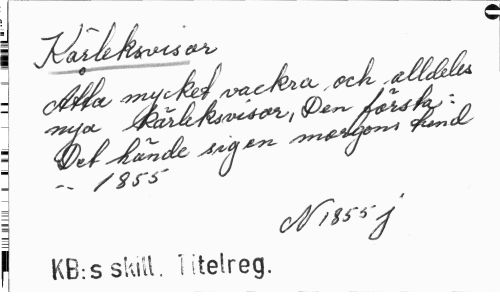 Kärleksvisor
Åtta mycket vackra och alldeles
nya kärleksvisor, Den första:
Det hände sig en morgon
-- 1855
N 1855 j
KB:s skill. Titelreg.